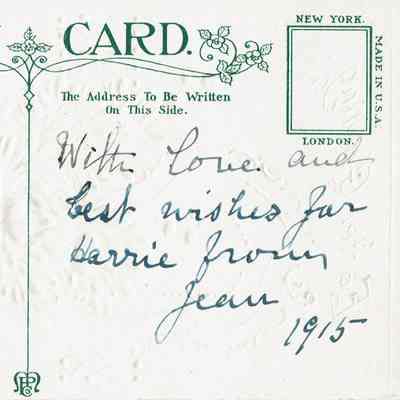 NEW YORK.
CARD.
MADE IN U.S.A
The Address To Be Written
On This Side.
LONDON.
With Love and
best wishes for
Harrie from
Jean
1915